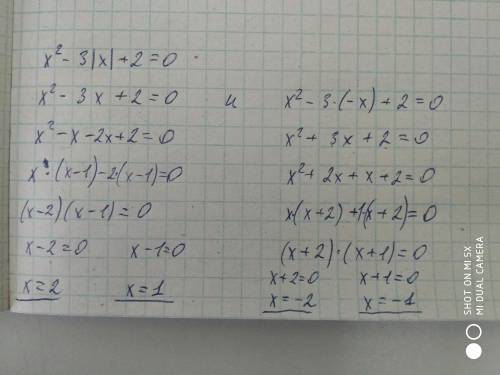 x² - 3|x| + 2 = 0
x² - 3x + 2 = 0 и x² - 3·(-x) + 2 = 0
x² - x - 2x + 2 = 0 x² + 3x + 2 = 0
x·(x-1) - 2·(x-1) = 0 x² + 2x + x + 2 = 0
(x-2)(x-1) = 0 x·(x+2) + 1·(x+2) = 0
x-2=0 x-1=0 (x+2)·(x+1) = 0
x=2 x=1 x+2=0 x+1=0
x=-2 x=-1
SHOT ON MI 5X
MI DUAL CAMERA